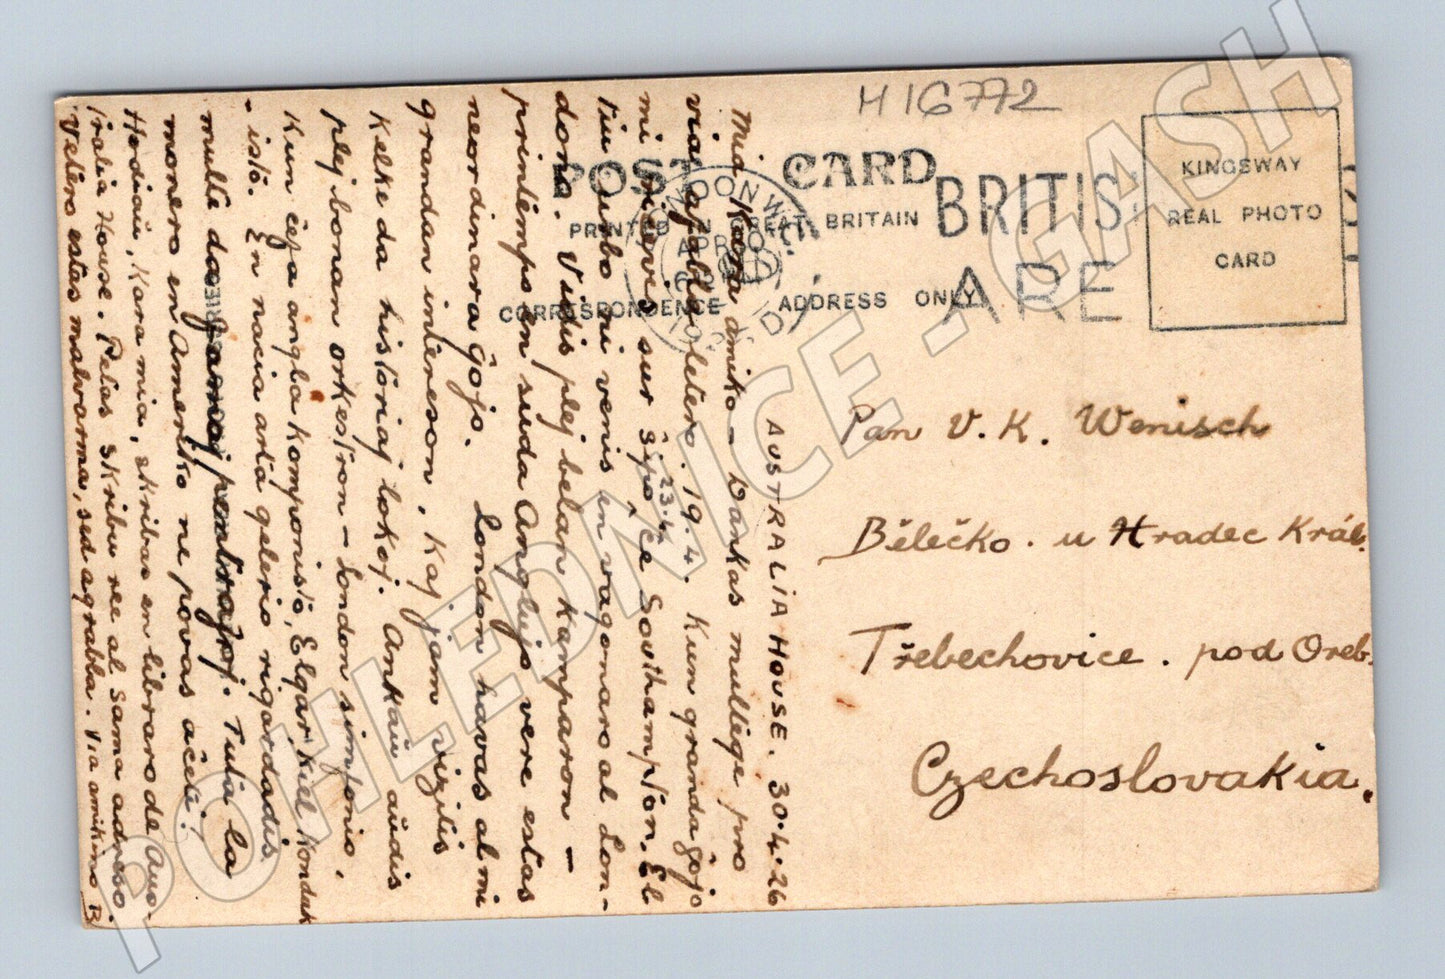 H16772
POST CARD
PRINTED IN GREAT BRITAIN
CORRESPONDENCE
ADDRESS ONLY
BRITIS
ARE
APR
KINGSWAY
REAL PHOTO
CARD
AUSTRALIA HOUSE. 30.4.26
Mia Kara amiko – Dankas multege pro
via afabla letero. 19.4. Kun granda ĝojo
mi ricevis sur ŝipo, ĉe Southampton. El
23.4.
tiu urbo ni venis en vagonaro al Lon-
dono. Vidis plej belan kamparon –
printempo en suda Anglujo vere estas
neordinara ĝojo. London havas al mi
grandan intereson, kaj jam vizitis
kelke da historiaj lokoj. Ankaŭ aŭdis
plej bonan orkestron – London simfonio,
kun ĉefa angla komponisto, Elgar, kiel konduk
- isto. En nacia arta galerio rigardadis
multe da famaj pentraĵoj. Tutia la
monero en Ameriko ne povas aĉeti!
Hodiaŭ, Kara mia, skribas en libraro de Aus-
tralia House. Petas skribu ree al sama adreso.
Vetero estas malvarma, sed agrabla. Via amikino R
Pan V. K. Wenisch
Bělečko. u Hradec Král.
Třebechovice. pod Oreb.
Czechoslovakia.
POHLEDNICE - GASH